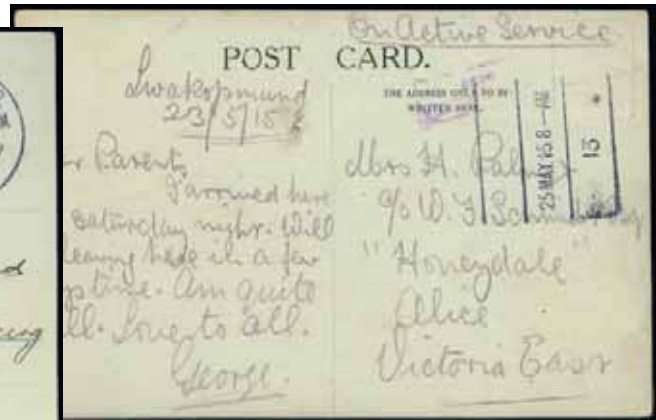 On Active Service
POST CARD.
THE ADDRESS ONLY TO BE
WRITTEN HERE.
Swakopmund
23/5/15
r Parents
I arrived here
saturday night. Will
leaving here in a few
s time. Am quite
ll. Love to all.
George.
Mrs H.
c/o W. F
"Honeydale"
Alice
Victoria East
25 MAY 15 8 - PM
13
d